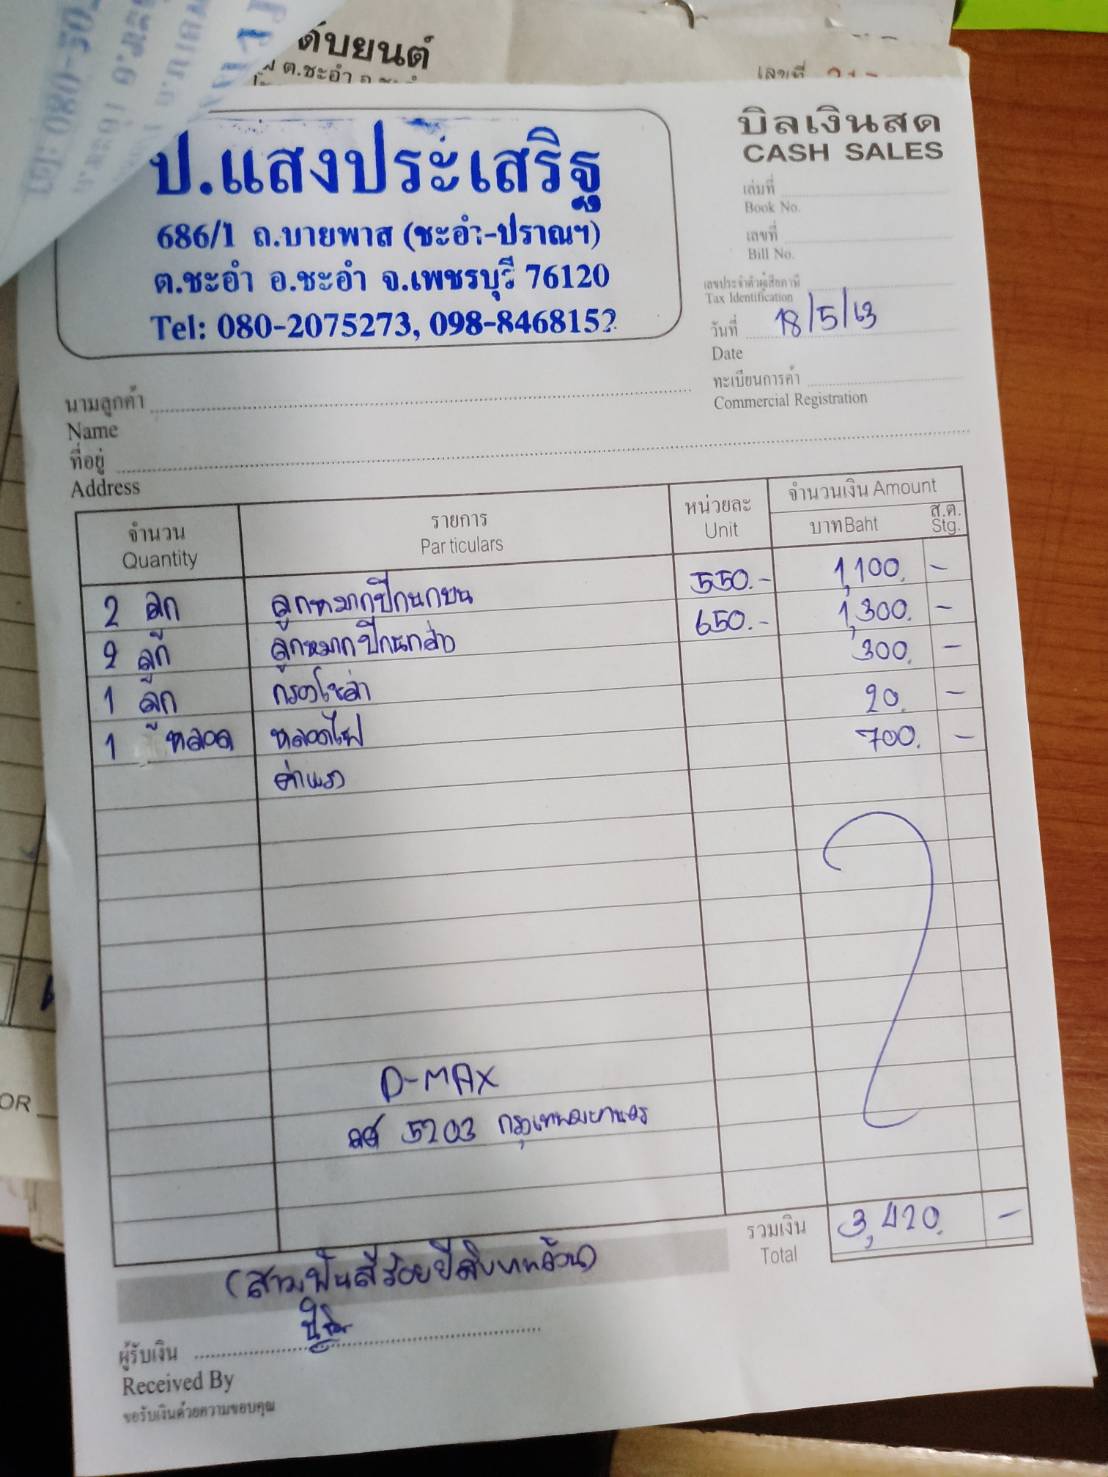 ต.ชะอำ
เลขที่
ป.แสงประเสริฐ
686/1 ถ.บายพาส (ชะอำ-ปราณฯ)
ต.ชะอำ อ.ชะอำ จ.เพชรบุรี 76120
Tel: 080-2075273, 098-8468152
บิลเงินสด
CASH SALES
เล่มที่
Book No.
เลขที่
Bill No.
เลขประจำตัวผู้เสียภาษี
Tax Identification
วันที่ 18/5/63
Date
ทะเบียนการค้า
Commercial Registration
นามลูกค้า
Name
ที่อยู่
Address
จำนวน รายการ หน่วยละ จำนวนเงิน Amount
Quantity Particulars Unit บาท Baht ส.ต. Stg.
2 ลูก ลูกหมากปีกนกบน 550.- 1,100. -
2 ลูก ลูกหมากปีกนกล่าง 650.- 1,300. -
1 ลูก กรองโซล่า 300. -
1 หลอด หลอดไฟ 20. -
ค่าแรง 700. -
D-MAX
5203 กรุงเทพมหานคร
รวมเงิน 3,420. -
Total
(สามพันสี่ร้อยยี่สิบบาทถ้วน)
ผู้รับเงิน
Received By
ขอรับเงินด้วยความขอบคุณ
OR